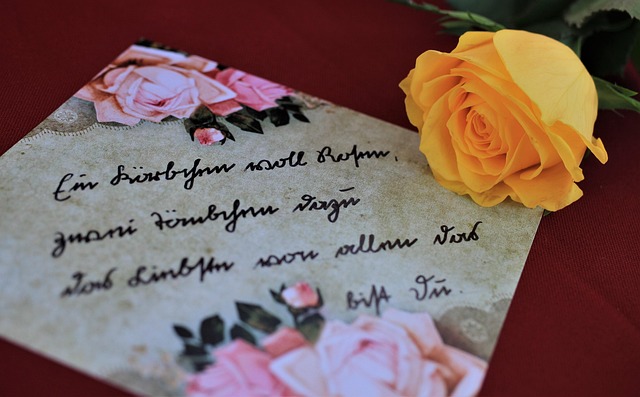 Ein Körbchen voll Rosen,
zwei Täubchen dazu
das Liebste von allen das
bist Du.